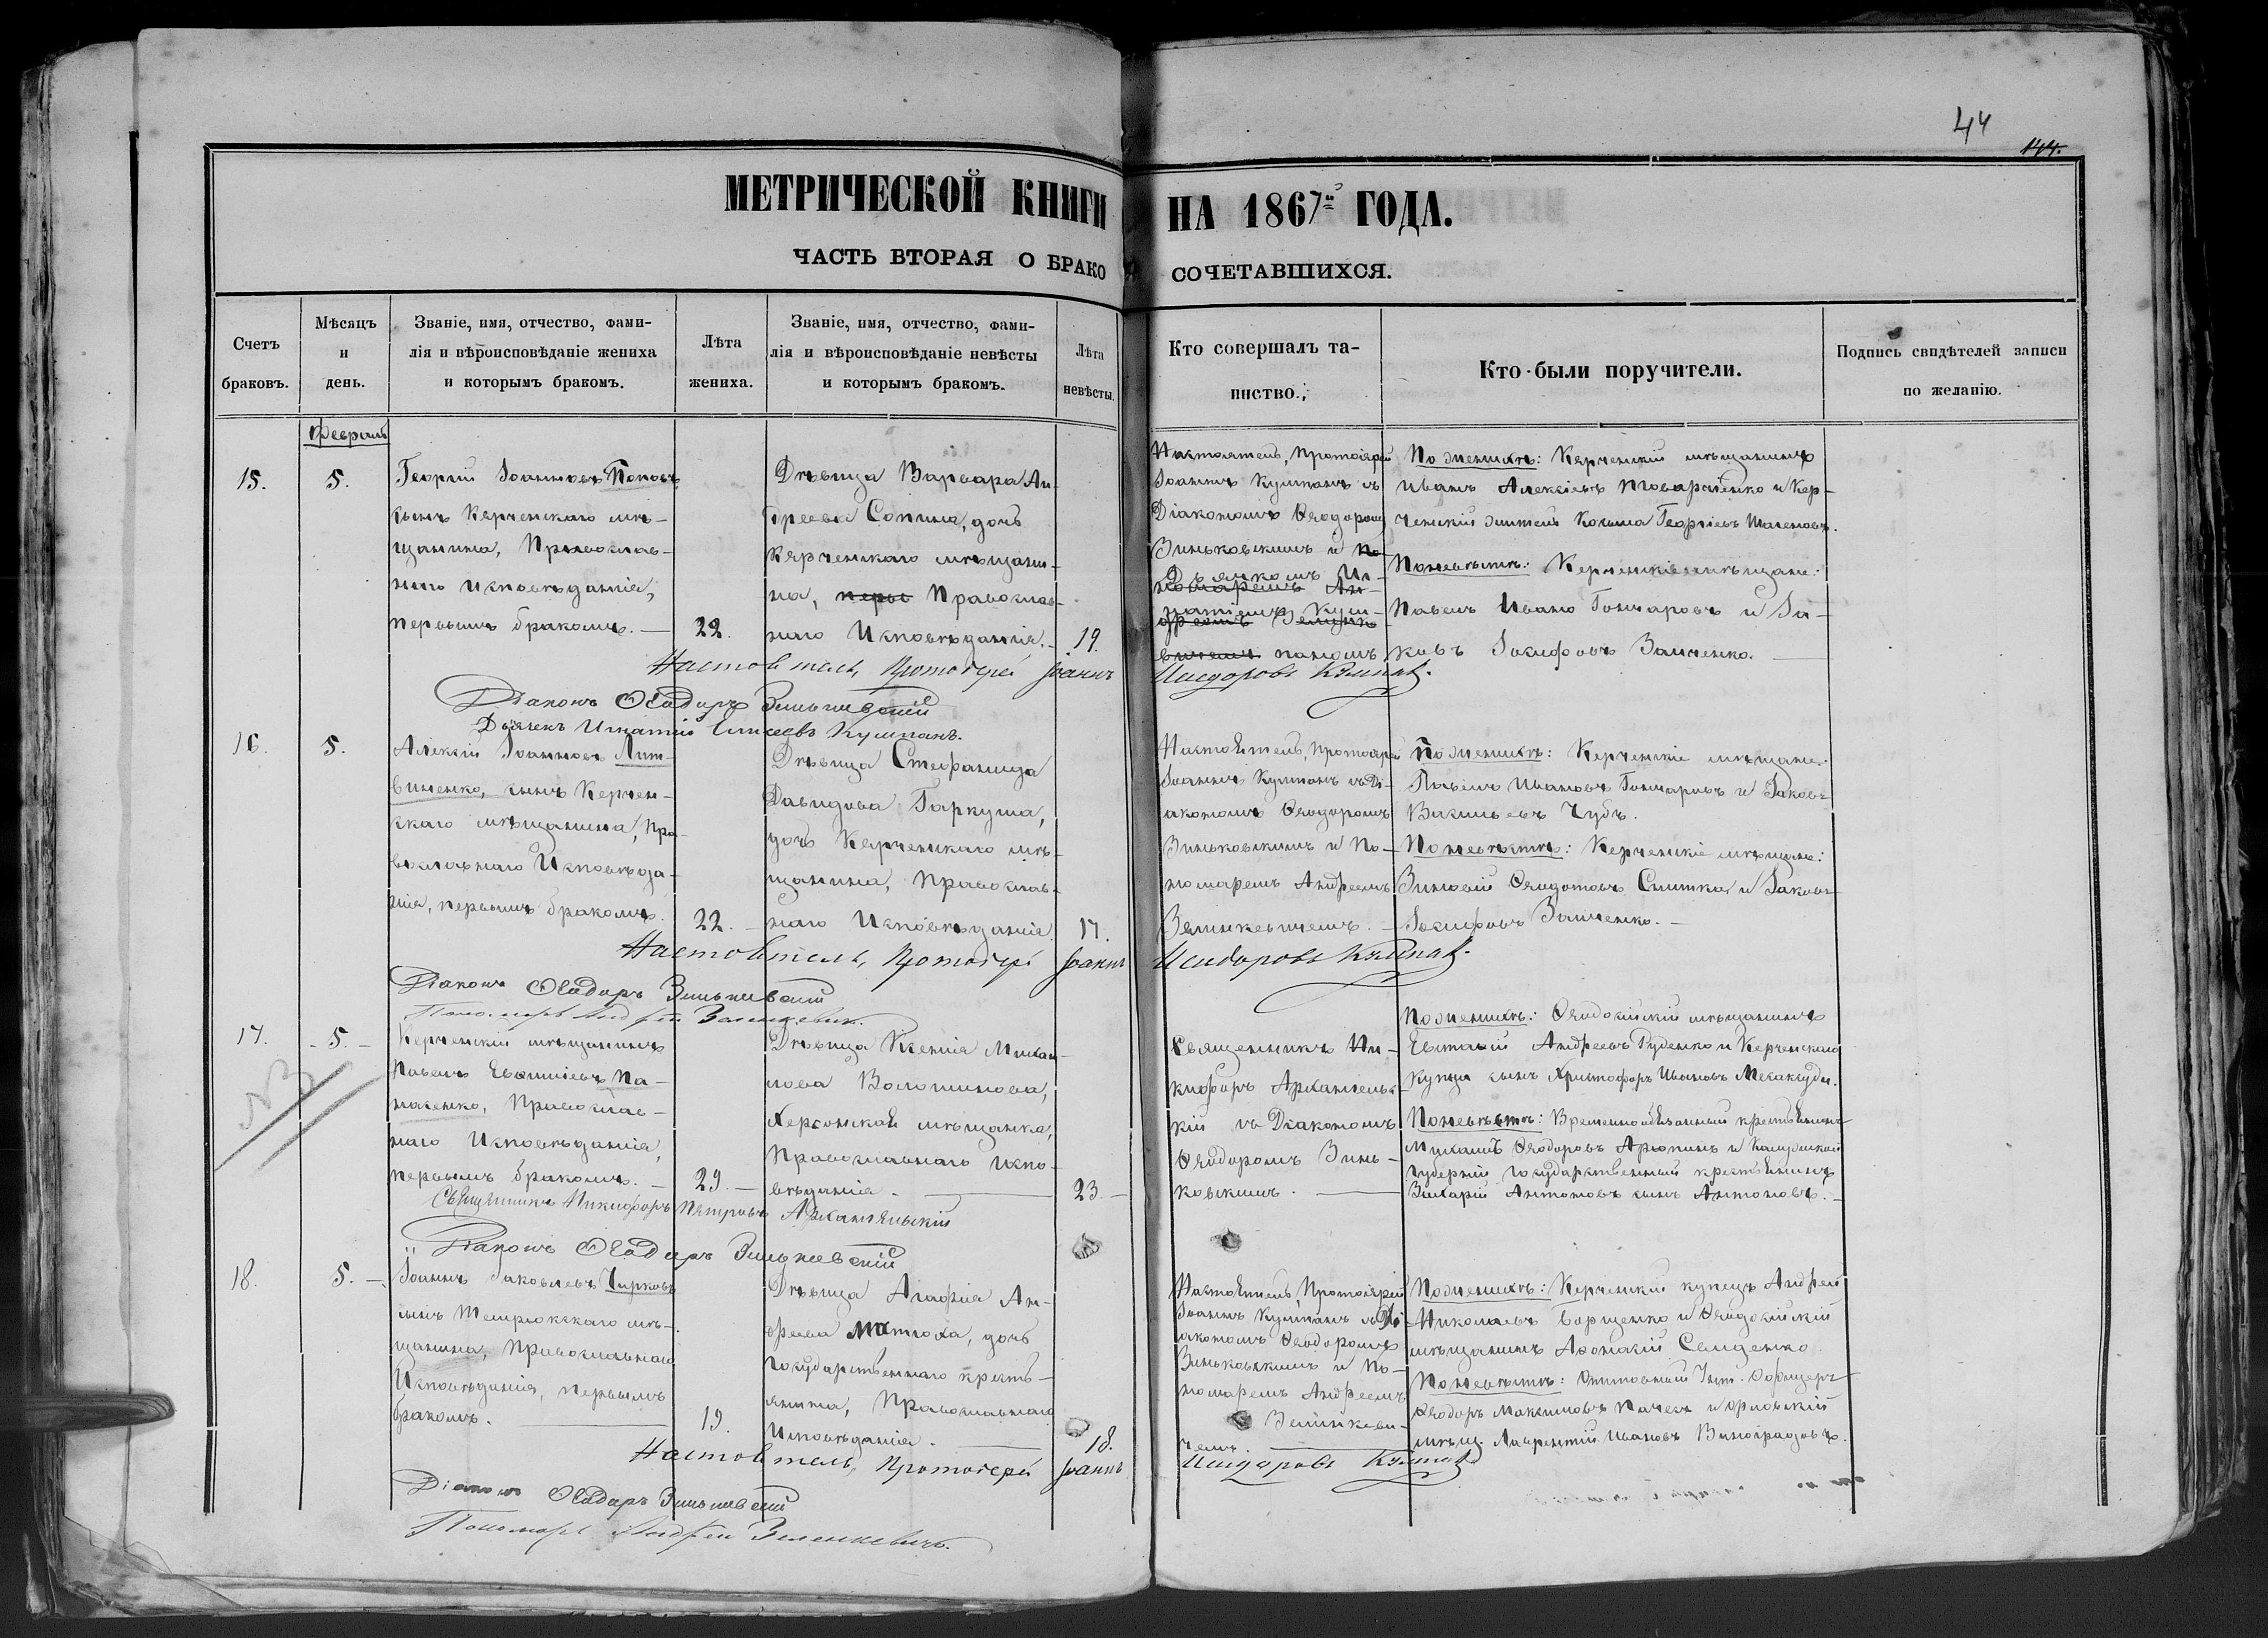 44
144.
МЕТРИЧЕСКОЙ КНИГИ НА 1867й ГОДА.
ЧАСТЬ ВТОРАЯ О БРАКОСОЧЕТАВШИХСЯ.
Счетъ
браковъ.
Мѣсяцъ
и
день.
Званіе, имя, отчество, фами-
лія и вѣроисповѣданіе жениха
и которымъ бракомъ.
Лѣта
жениха.
Званіе, имя, отчество, фами-
лія и вѣроисповѣданіе невѣсты
и которымъ бракомъ.
Лѣта
невѣсты.
Кто совершалъ та-
инство.
Кто были поручители.
Подпись свидѣтелей записи
по желанію.
Февраль
15.
5.
Георгій Іоанновъ Поповъ
сынъ Керченскаго мѣ-
щанина, Православ-
наго Исповѣданія,
первымъ бракомъ.
22.
Дѣвица Варвара Ан-
дреева Сопина, дочь
Керченскаго мѣщани-
на, Православ-
наго Исповѣданія.
19.
Настоятель, Протоіерей
Іоаннъ Кулпанъ съ
Діакономъ Ѳеодоромъ
Зиньковскимъ и
Дьячкомъ Иг-
натіемъ Кул-
паномъ
По женихѣ: Керченскій мѣщанинъ
Иванъ Алексіевъ и Кер-
ченскій житель Козьма Георгіевъ
По невѣстѣ: Керченскіе мѣщане:
Павелъ Ивановъ Гончаровъ и Іа-
ковъ Іосифовъ Заиченко.
Настоятель, Протоіерей Іоаннъ Исидоровъ Кулпанъ.
Діаконъ Ѳеодоръ Зиньковскій
Дьячекъ Игнатій Елисеевъ Кулпанъ.
16.
5.
Алексій Іоанновъ Лит-
виненко, сынъ Керчен-
скаго мѣщанина, Пра-
вославнаго Исповѣда-
нія, первымъ бракомъ.
22.
Дѣвица Стефанида
Давидова Гаркуша,
дочь Керченскаго мѣ-
щанина, Православ-
наго Исповѣданія.
17.
Настоятель, Протоіерей
Іоаннъ Кулпанъ съ Ді-
акономъ Ѳеодоромъ
Зиньковскимъ и По-
номаремъ Андреемъ
Зелинкевичемъ.
По женихѣ: Керченскіе мѣщане:
Павелъ Ивановъ Гончаровъ и Іаковъ
Васильевъ Чубъ.
По невѣстѣ: Керченскіе мѣщане:
Зиновій Ѳеодотовъ Снитка и Іаковъ
Іосифовъ Заиченко.
Настоятель, Протоіерей Іоаннъ Исидоровъ Кулпанъ.
Діаконъ Ѳеодоръ Зиньковскій
Пономарь Андрей Зелинкевичъ.
17.
5.
NB
Керченскій мѣщанинъ
Павелъ Евсигніевъ Па-
насенко, Православ-
наго Исповѣданія,
первымъ бракомъ.
29.
Дѣвица Ксенія Михаи-
лова Волошинова,
Херсонская мѣщанка,
Православнаго Испо-
вѣданія.
23.
Священникъ Ни-
кифоръ Архангельс-
кій съ Діакономъ
Ѳеодоромъ Зинь-
ковскимъ.
По женихѣ: Ѳеодосійскій мѣщанинъ
Евстафій Андреевъ Руденко и Керченскаго
купца сынъ Христофоръ Ивановъ Месаксуди.
По невѣстѣ: Временнообязанный крестьянинъ
Михаилъ Ѳеодоровъ Арюпинъ и Калужской
губерніи государственный крестьянинъ
Захарій Антоновъ сынъ Антоновъ.
Священникъ Никифоръ Петровъ Архангельскій
Діаконъ Ѳеодоръ Зиньковскій
18.
5.
Іоаннъ Іаковлевъ Чирковъ
сынъ Темрюкскаго мѣ-
щанина, Православнаго
Исповѣданія, первымъ
бракомъ.
19.
Дѣвица Агафія Ан-
дреева Матюха, дочь
государственнаго кресть-
янина, Православнаго
Исповѣданія.
18.
Настоятель, Протоіерей
Іоаннъ Кулпанъ съ Ді-
акономъ Ѳеодоромъ
Зиньковскимъ и По-
номаремъ Андреемъ
Зелинкеви-
чемъ.
По женихѣ: Керченскій купецъ Андрей
Николаевъ Борщенко и Ѳеодосійскій
мѣщанинъ Аѳонасій Селиденко.
По невѣстѣ: Унт. Офицеръ
Ѳеодоръ Максимовъ и Орловскій
мѣщ. Лаврентій Ивановъ Виноградовъ.
Настоятель, Протоіерей Іоаннъ Исидоровъ Кулпанъ
Діаконъ Ѳеодоръ Зиньковскій
Пономарь Андрей Зелинкевичъ.